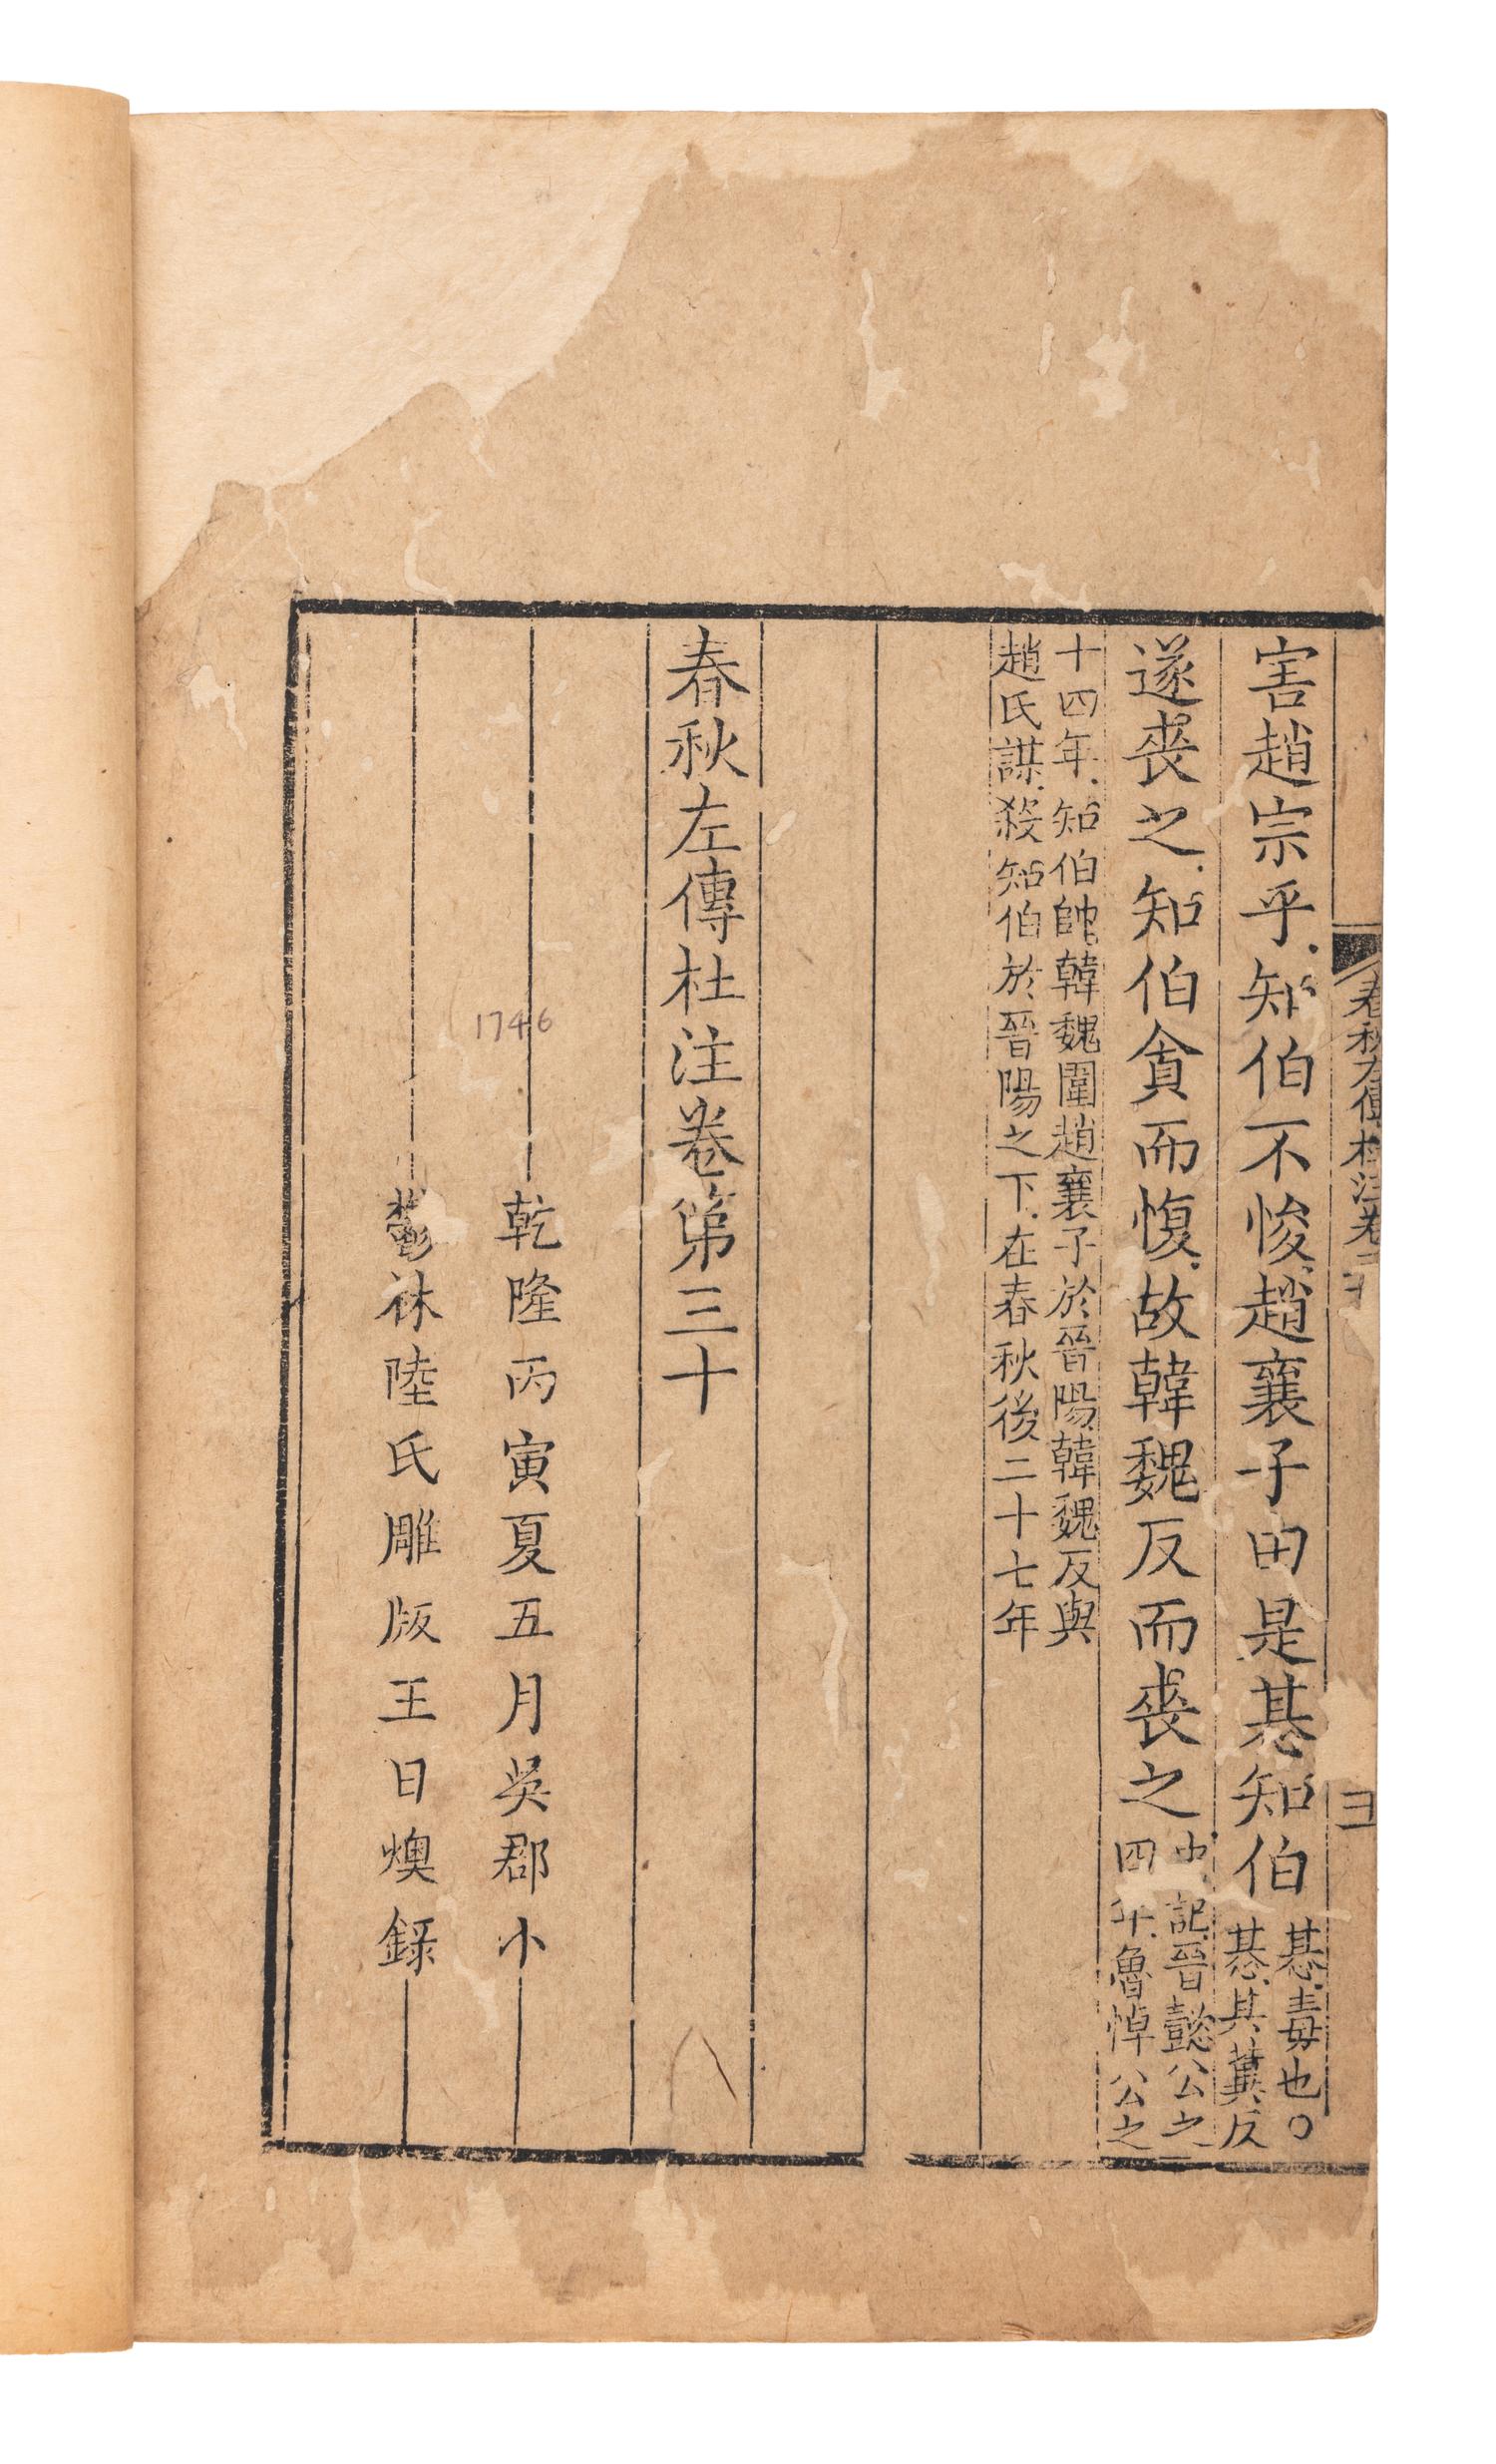 春秋左傳杜注卷三十
害趙宗乎知伯不悛趙襄子田是惎知伯
惎毒也○
惎其冀反
遂喪之知伯貪而愎故韓魏反而喪之
史記晉懿公之
四年魯悼公之
十四年知伯帥韓魏圍趙襄子於晉陽韓魏反與
趙氏謀殺知伯於晉陽之下在春秋後二十七年
春秋左傳杜注卷第三十
乾隆丙寅夏五月吳郡小
1746
鬱林陸氏雕版王日燠錄